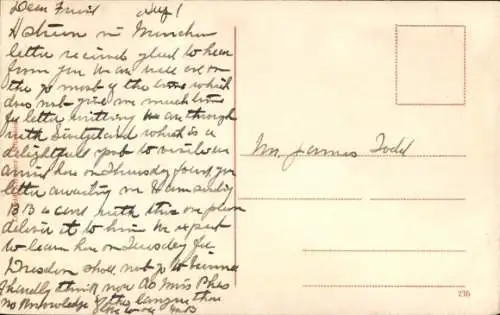 Dear Friend Aug 1
I am in Munchen
letter received glad to hear
from you We are well are on
the go most of the time which
does not give me much time
for letter writing We are through
with Switzerland which is a
delightful spot to visit we
arrived here on Thursday found your
letter awaiting me I am sending
B B a card with this one please
deliver it to him We expect
to leave here on Tuesday for
Dresden shall not go to
I hardly think nor do Miss
no knowledge of the language there
Mr. James Todd
236